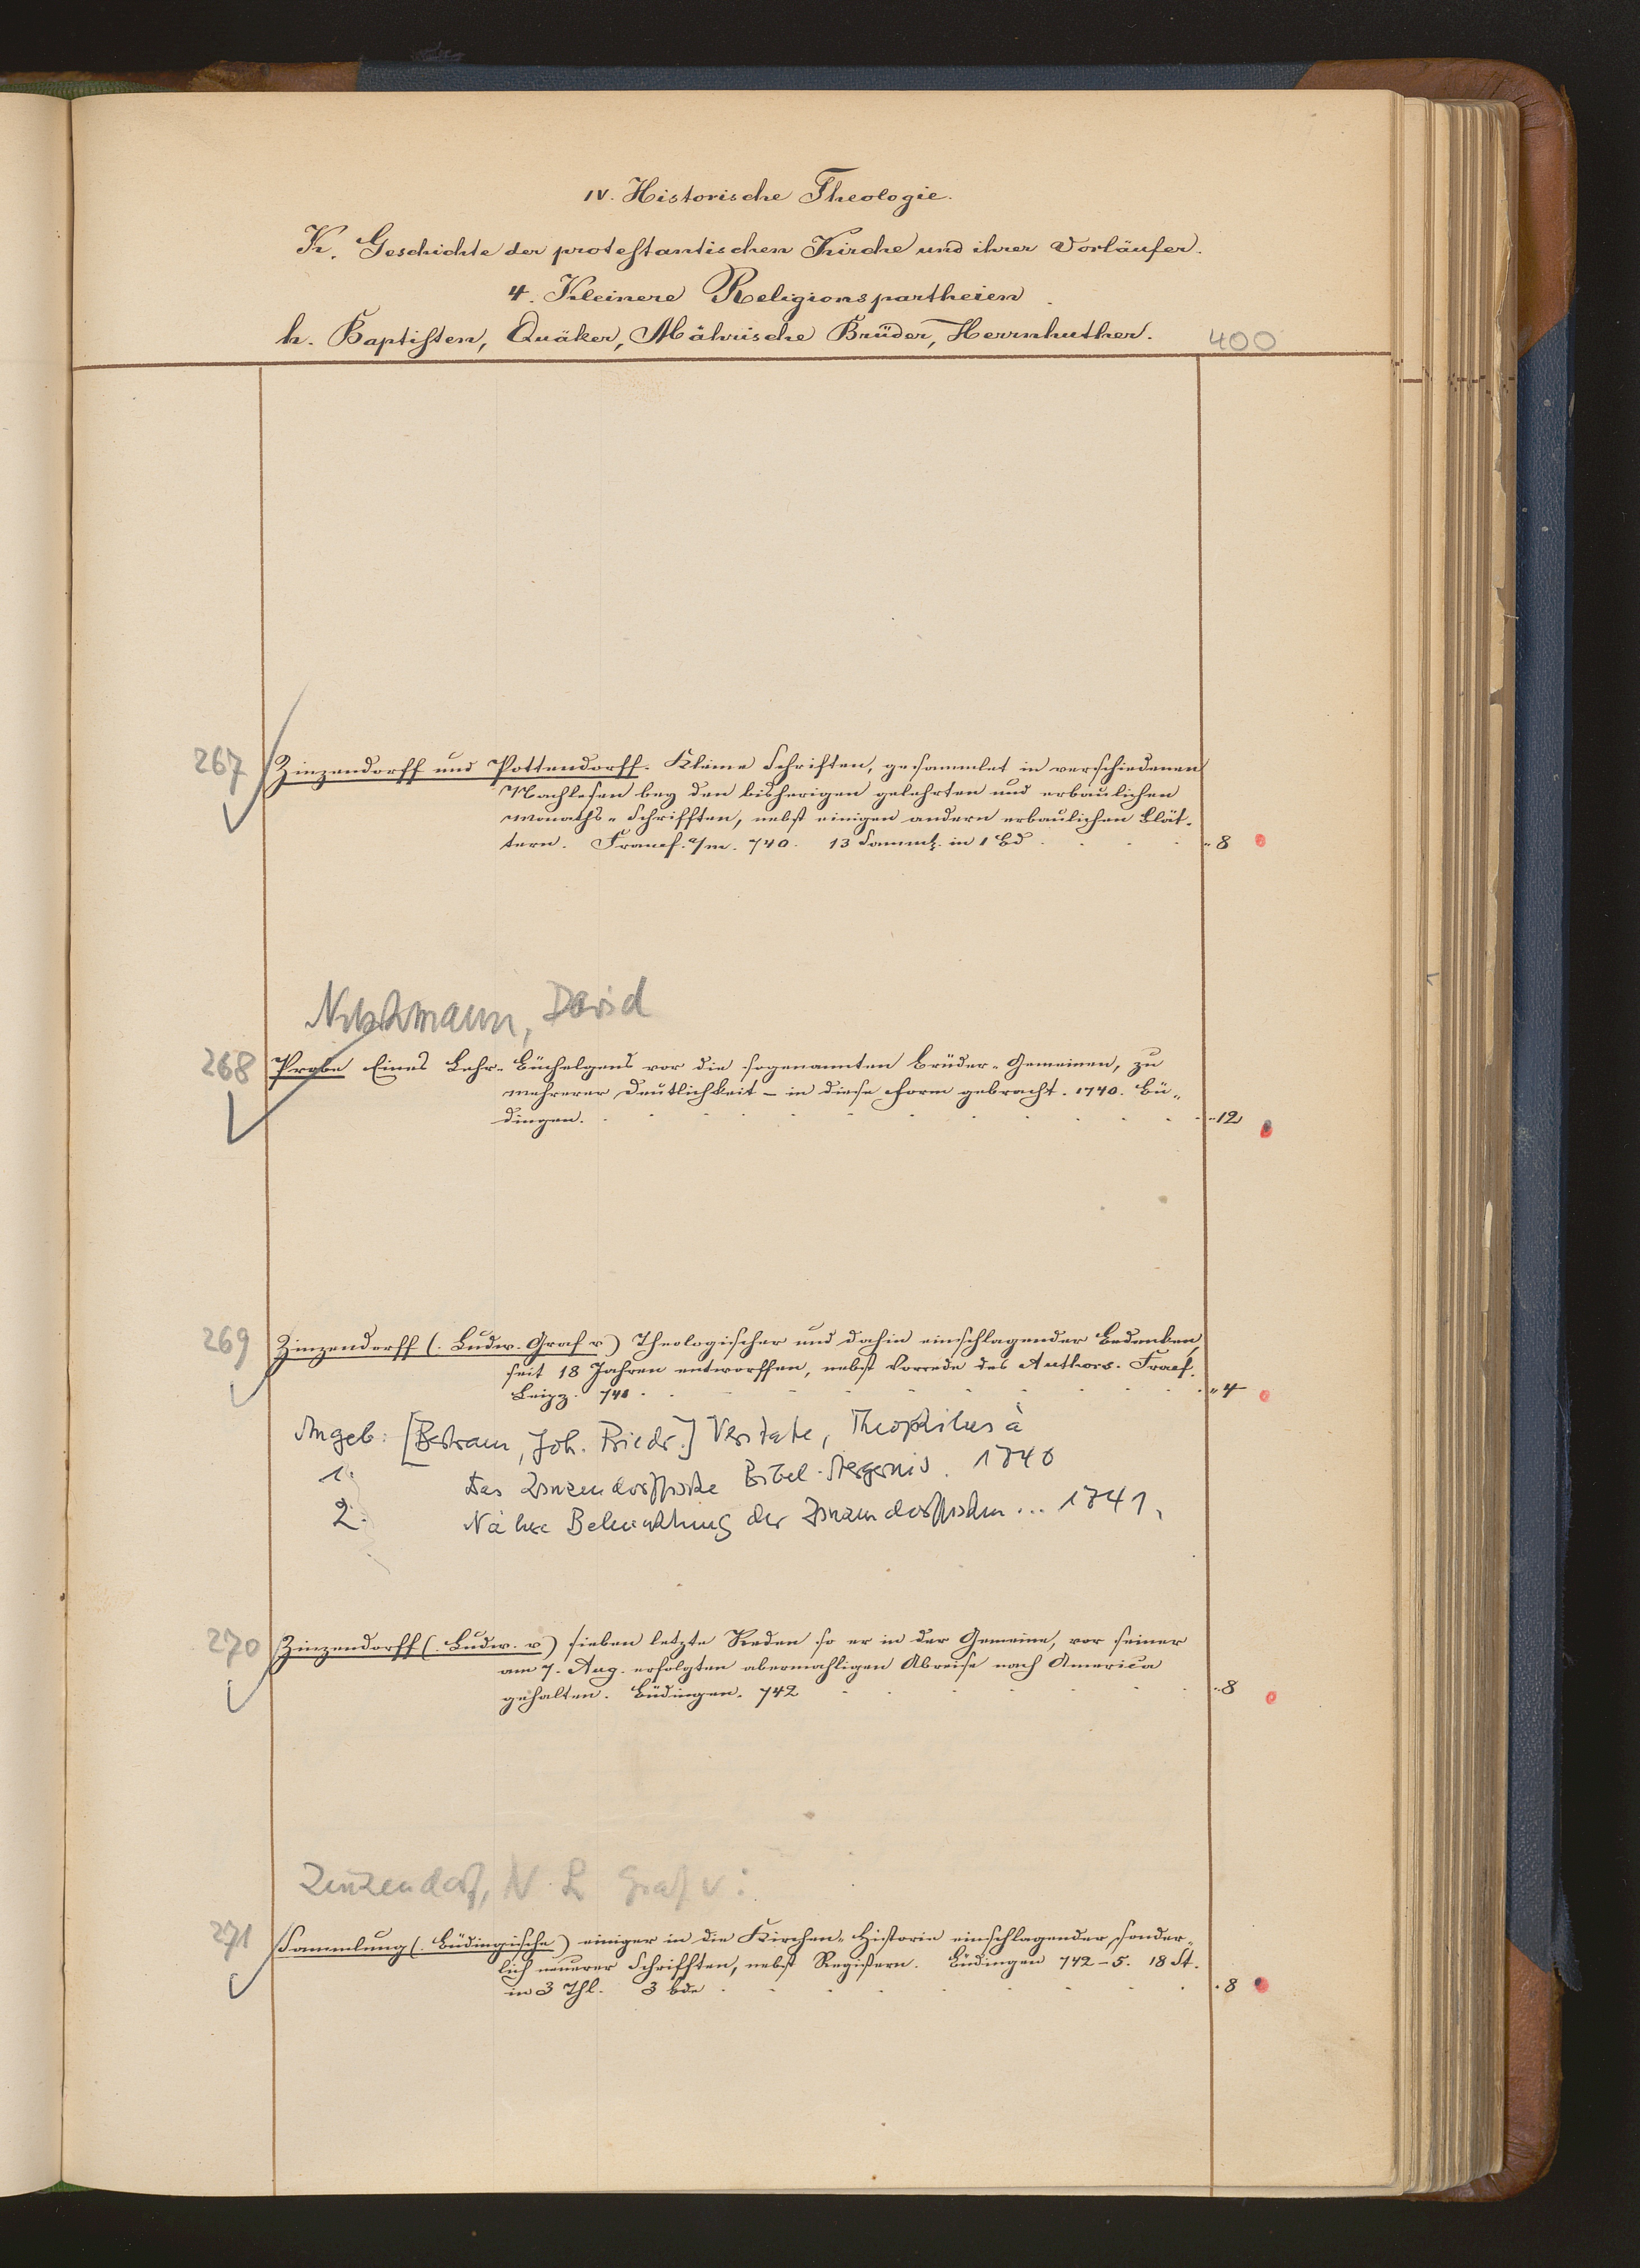 IV. Historische Theologie.
K. Geschichte der protestantischen Kirche und ihrer Vorläufer.
4. Kleinere Religionspartheien.
h. Baptisten, Quäker, Mährische Brüder, Herrnhuther. 400
267 Zinzendorff und Pottendorff. Kleine Schriften, gesammlet in verschiedenen
Nachlesen bey den bisherigen gelehrten und erbaulichen
Monaths-Schrifften, nebst einigen andern erbaulichen Blät-
tern. Francf. a/m. 740. 13 Samml. in 1 Bd. 8
Nitschmann, David
268 Probe Eines Lehr-Büchelgens vor die sogenannten Brüder-Gemeinen, zu
mehrerer Deutlichkeit – in diese Form gebracht. 1740. Bü-
dingen. 12
269 Zinzendorff (. Ludw. Graf v) Theologischer und dahin einschlagender Bedenken,
seit 18 Jahren entworffen, nebst Vorrede des Authors. Fracf.
Leipz. 740. 4
Angeb: [Bertram, Joh. Friedr.] Veritate, Theophilus à
1. Das Zinzendorffische Bibel-Aergernis. 1740
2. Nähere Beleuchtung der Zinzendorffischen ... 1741.
270 Zinzendorff (. Ludw. v) sieben letzte Reden so er in der Gemeine, vor seiner
am 7. Aug. erfolgten abermahligen Abreise nach America
gehalten. Büdingen. 742 8
Zinzendorf, N. L. Graf v:
271 Sammlung (. Büdingische) einiger in die Kirchen-Historie einschlagender, sonder-
lich neuerer Schrifften, nebst Registern. Büdingen 742–5. 18 St.
in 3 Thl. 3 bde 8